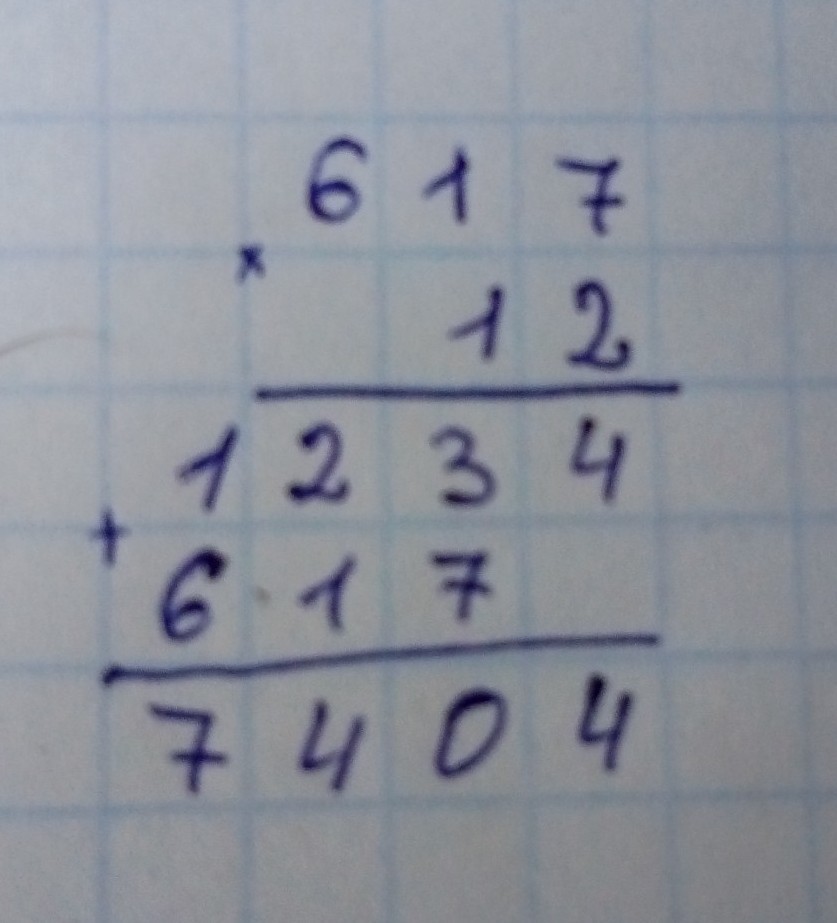 617
×
12
1234
+
617
7404